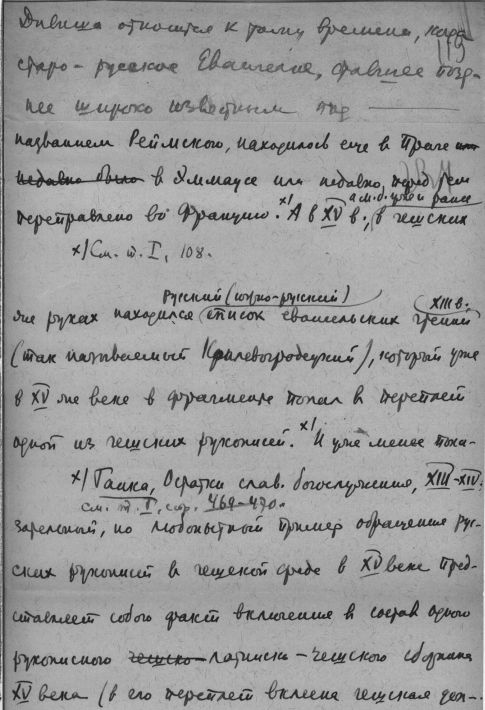 Дивиша относится к тому времени, когда
119
старо-русское Евангелие, ставшее позд-
нее широко известным под
названием Реймского, находилось еще в Праге или
недавно было в Эммаусе или недавно, перед тем
а м.б. уже и ранее
переправлено во Францию. x) А в XV в., в чешских
x) См. т. I, 108.
русский (южно-русский) XIII в.
же руках находился список евангельских чтений
(так называемый Крилевоградецкий), который уже
в XV же веке в фрагменте попал в переплет
одной из чешских рукописей. x) И уже менее пока-
x) Ганка, Остатки слав. богослужения, XIII-XIV.
см. т. I, стр. 469-470.
зательный, но любопытный пример обращения рус-
ских рукописей в чешской среде в XV веке пред-
ставляет собою факт включения в состав одного
рукописного чешско- латинско-чешского сборника
XV века (в его переплет вклеена чешская